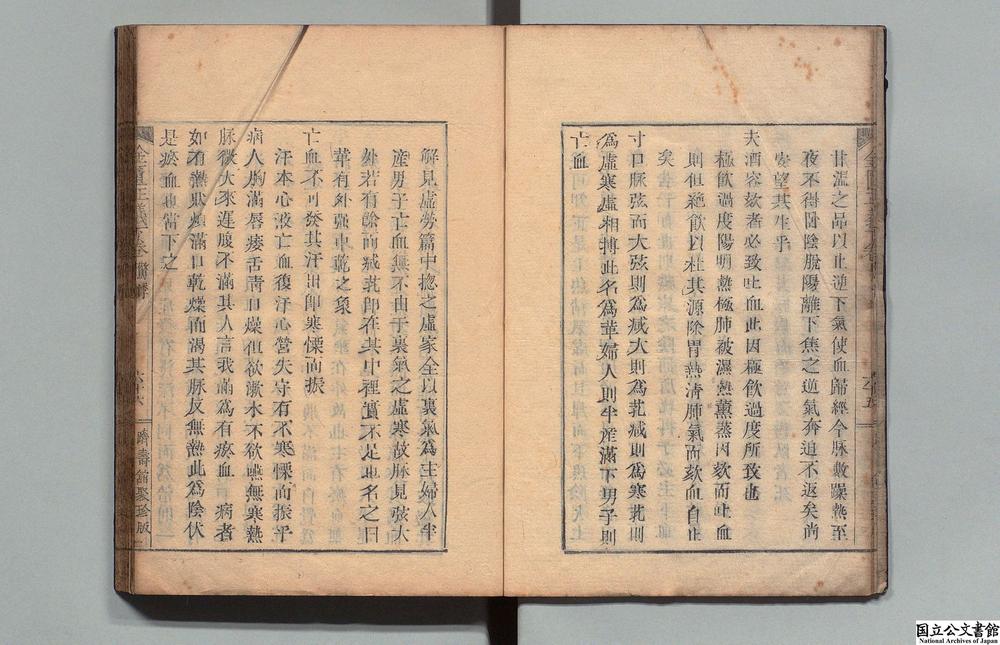 甘溫之品以止逆下氣使血歸經今脉數躁熱至
夜不得臥陰脫陽離下焦之逆氣奔迫不返矣尚
安望其生乎
夫酒客欬者必致吐血此因極飲過度所致也
極飲過度陽明熱極肺被濕熱薰蒸因欬而吐血
則但絕飲以杜其源除胃熱清肺氣而欬血自止
矣
寸口脈弦而大弦則為减大則為芤减則為寒芤則
為虛寒虛相搏此名為革婦人則半產漏下男子則
亡血
解見虛勞篇中揔之虛家全以裏氣為主婦人半
產男子亡血無不由于裏氣之虛寒故脉見弦大
外若有餘而减芤即在其中裡實不足也名之曰
革有外强中乾之象
亡血不可發其汗汗出即寒慄而振
汗本心液亡血復汗心營失守有不寒慄而振乎
病人胸滿唇痿舌青口燥但欲漱水不欲嚥無寒熱
脉微大來遲腹不滿其人言我滿為有瘀血 病者
如有熱狀煩滿口乾燥而渴其脉反無熱此為陰伏
是瘀血也當下之
躋壽館聚珍版
国立公文書館
National Archives of Japan